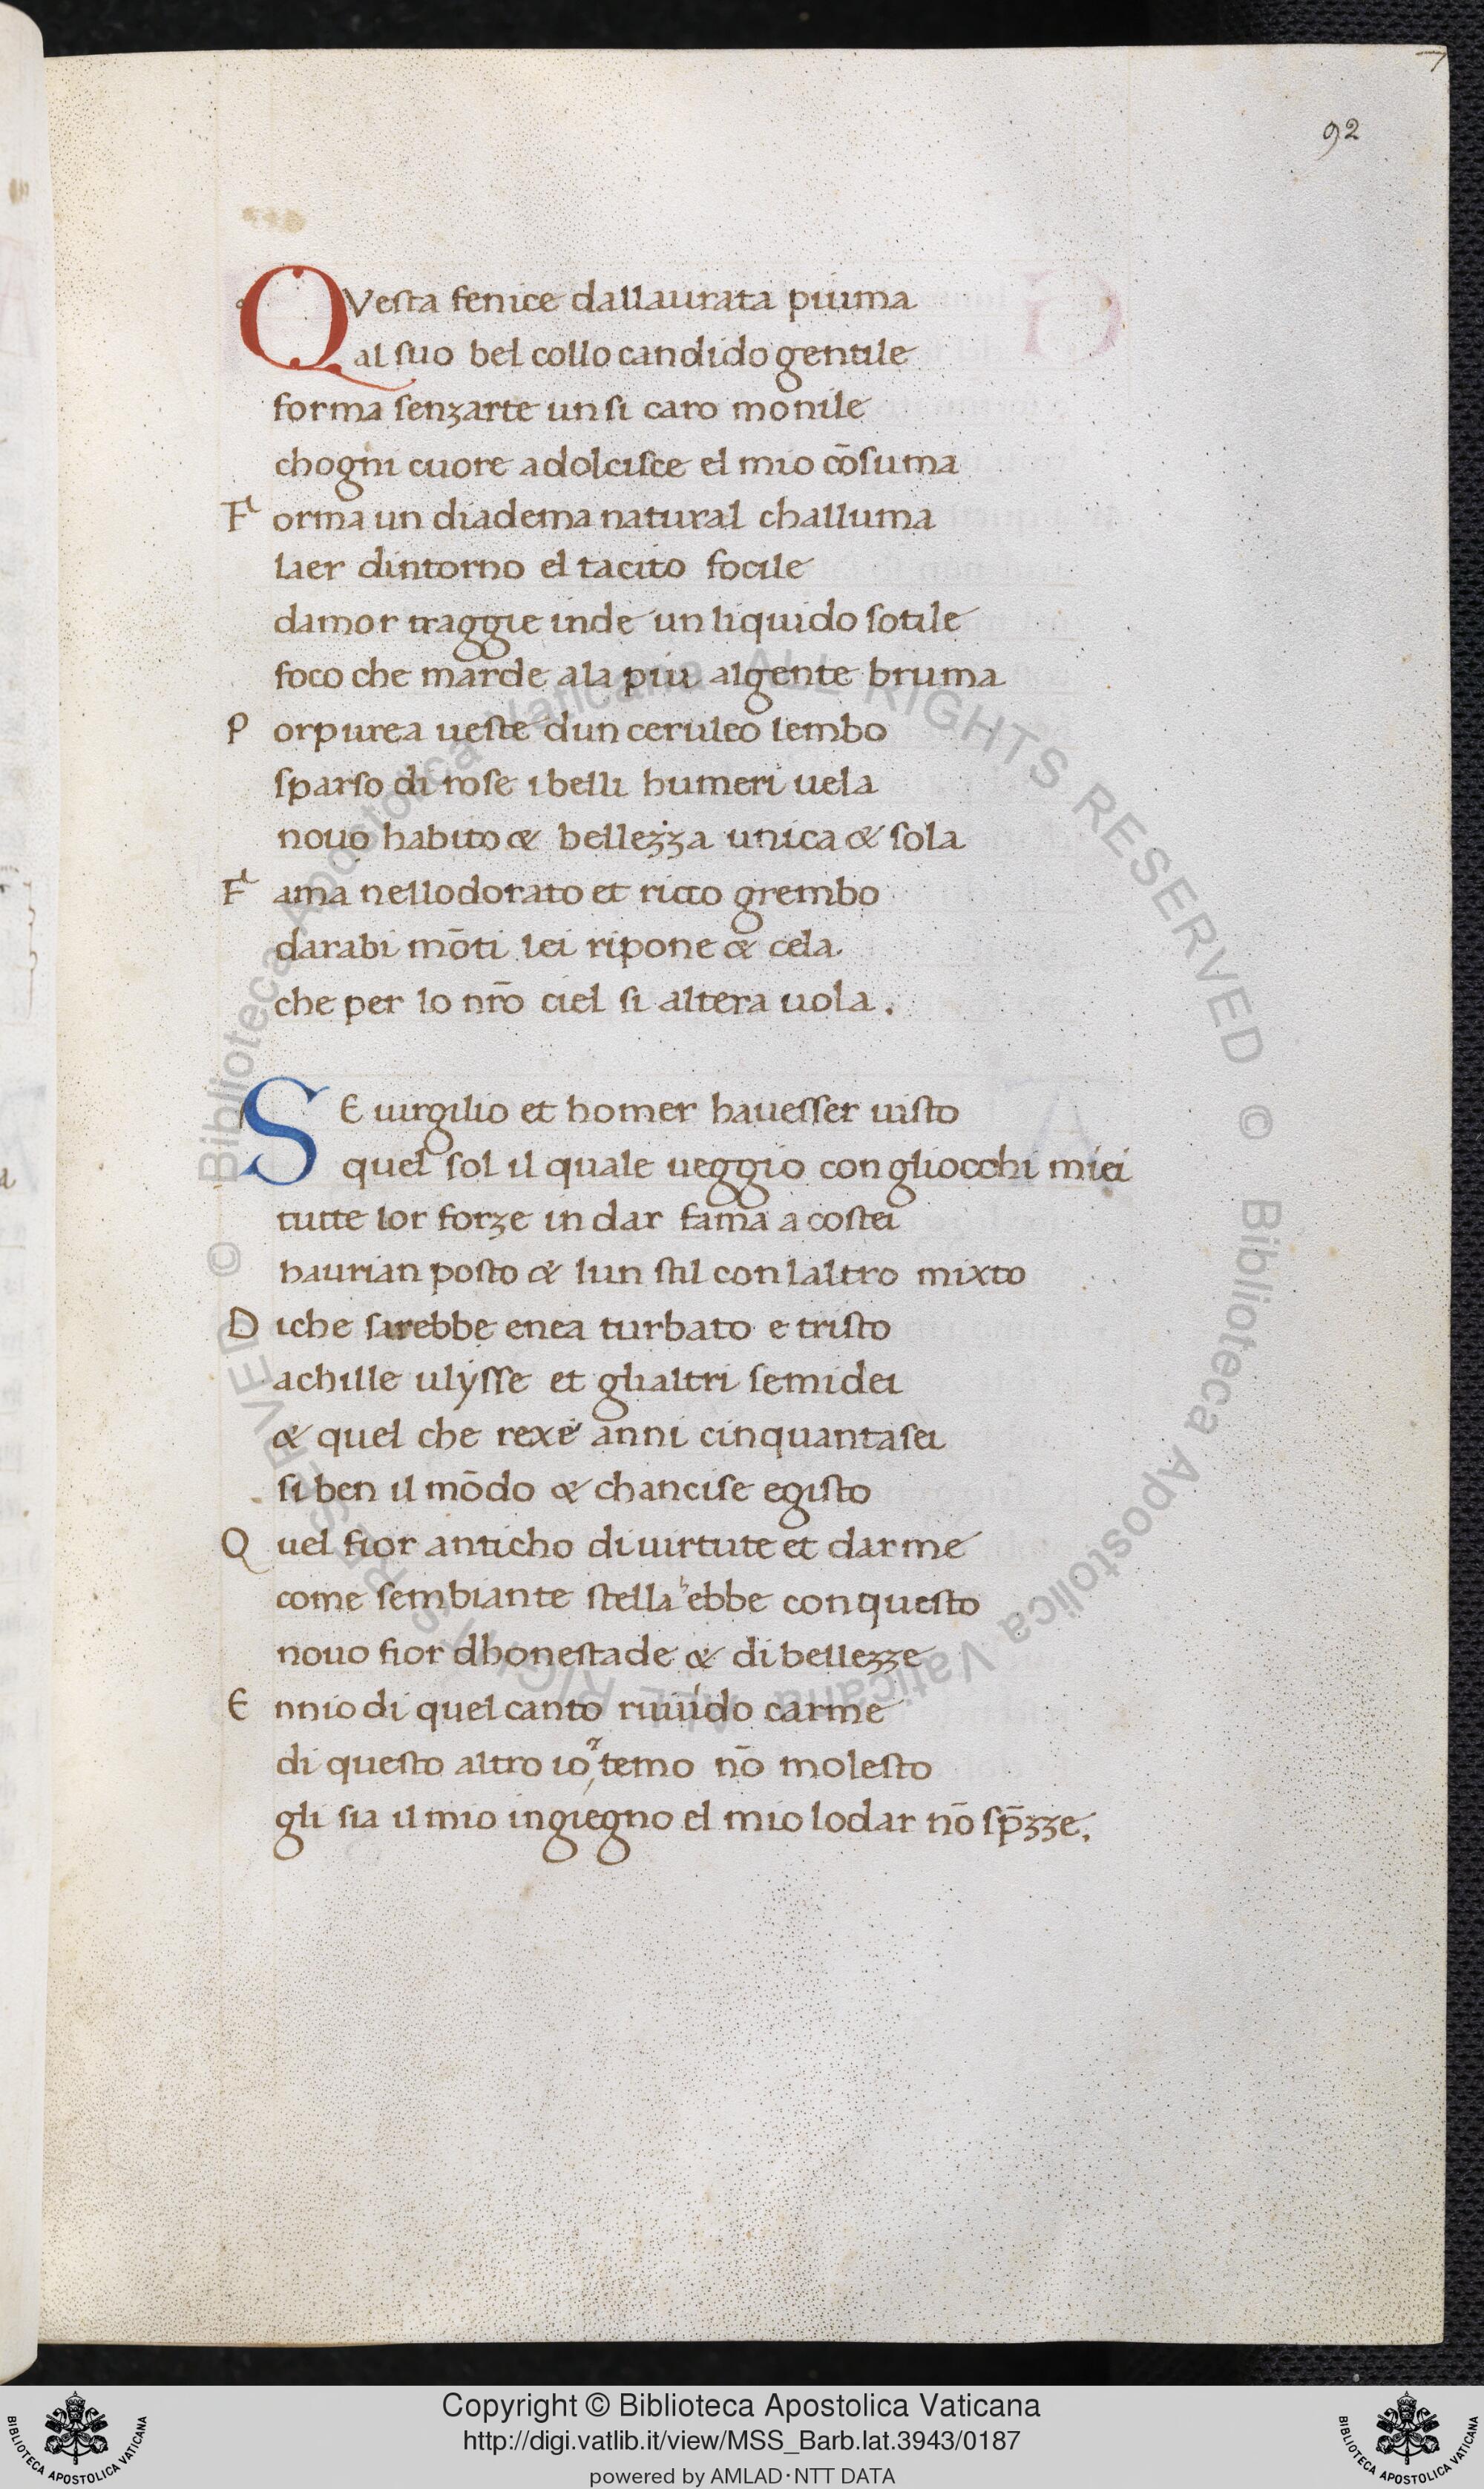 92
QVesta fenice dallaurata piuma
al suo bel collo candido gentile
forma senzarte un si caro monile
chogni cuore adolcisce el mio cōsuma
Forma un diadema natural challuma
laer dintorno el tacito focile
damor traggie inde un liquido sotile
foco che marde ala piu algente bruma
Porpurea ueste dun ceruleo lembo
sparso di rose i belli humeri uela
nouo habito & bellezza unica & sola
Fama nellodorato et ricco grembo
darabi mōti lei ripone & cela
che per lo nr̄o ciel si altera uola.
SE uirgilio et homer hauesser uisto
quel sol il quale ueggio con gliocchi miei
tutte lor forze in dar fama a costei
haurian posto & lun stil con laltro mixto
Diche sarebbe enea turbato e tristo
achille ulysse et glialtri semidei
& quel che rexe anni cinquantasei
si ben il mōdo & chancise egisto
Quel fior anticho di uirtute et darme
come sembiante stella hebbe con questo
nouo fior dhonestade & di bellezze
Ennio di quel canto ruuido carme
di questo altro io temo nō molesto
gli sia il mio ingiegno el mio lodar nō sp̄zze.
© Biblioteca Apostolica Vaticana ALL RIGHTS RESERVED © Biblioteca Apostolica Vaticana ALL RIGHTS RESERVED
BIBLIOTECA APOSTOLICA VATICANA
Copyright © Biblioteca Apostolica Vaticana
http://digi.vatlib.it/view/MSS_Barb.lat.3943/0187
powered by AMLAD·NTT DATA
BIBLIOTECA APOSTOLICA VATICANA